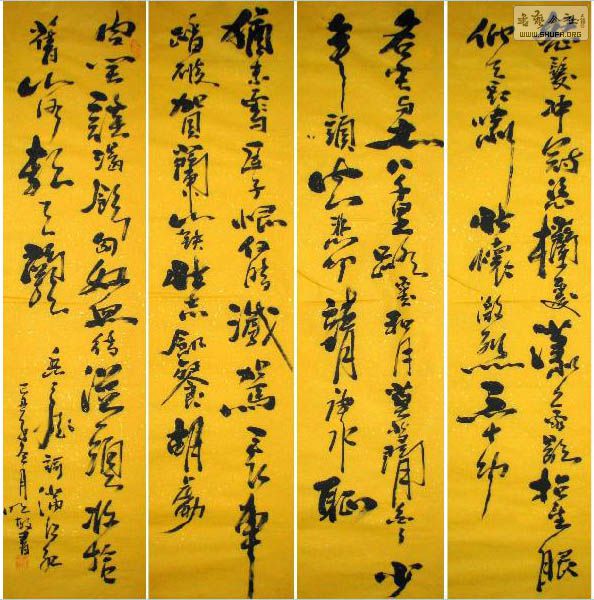 书艺公社
WWW.SHUFA.ORG
怒髮冲冠憑欄處瀟瀟雨歇抬望眼
仰天長嘯壯懷激烈三十功
名塵与土八千里路雲和月莫等閒白了少
年頭空悲切靖康恥
猶未雪臣子恨何時滅駕長車
踏破賀蘭山缺壯志飢餐胡虜
肉笑談渴飲匈奴血待從頭收拾
舊山河朝天闕
岳飛詞滿江紅